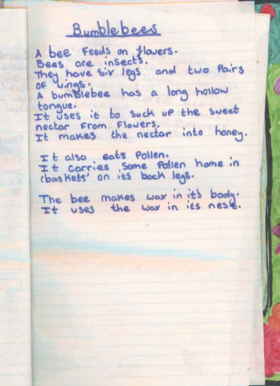 Bumblebees
A bee feeds on flowers.
Bees are insects.
They have six legs and two pairs
of wings.
A bumblebee has a long hollow
tongue.
It uses it to suck up the sweet
nectar from flowers.
It makes the nectar into honey.
It also eats pollen.
It carries some pollen home in
'baskets' on its back legs.
The bee makes wax in it's body.
It uses the wax in its nest.